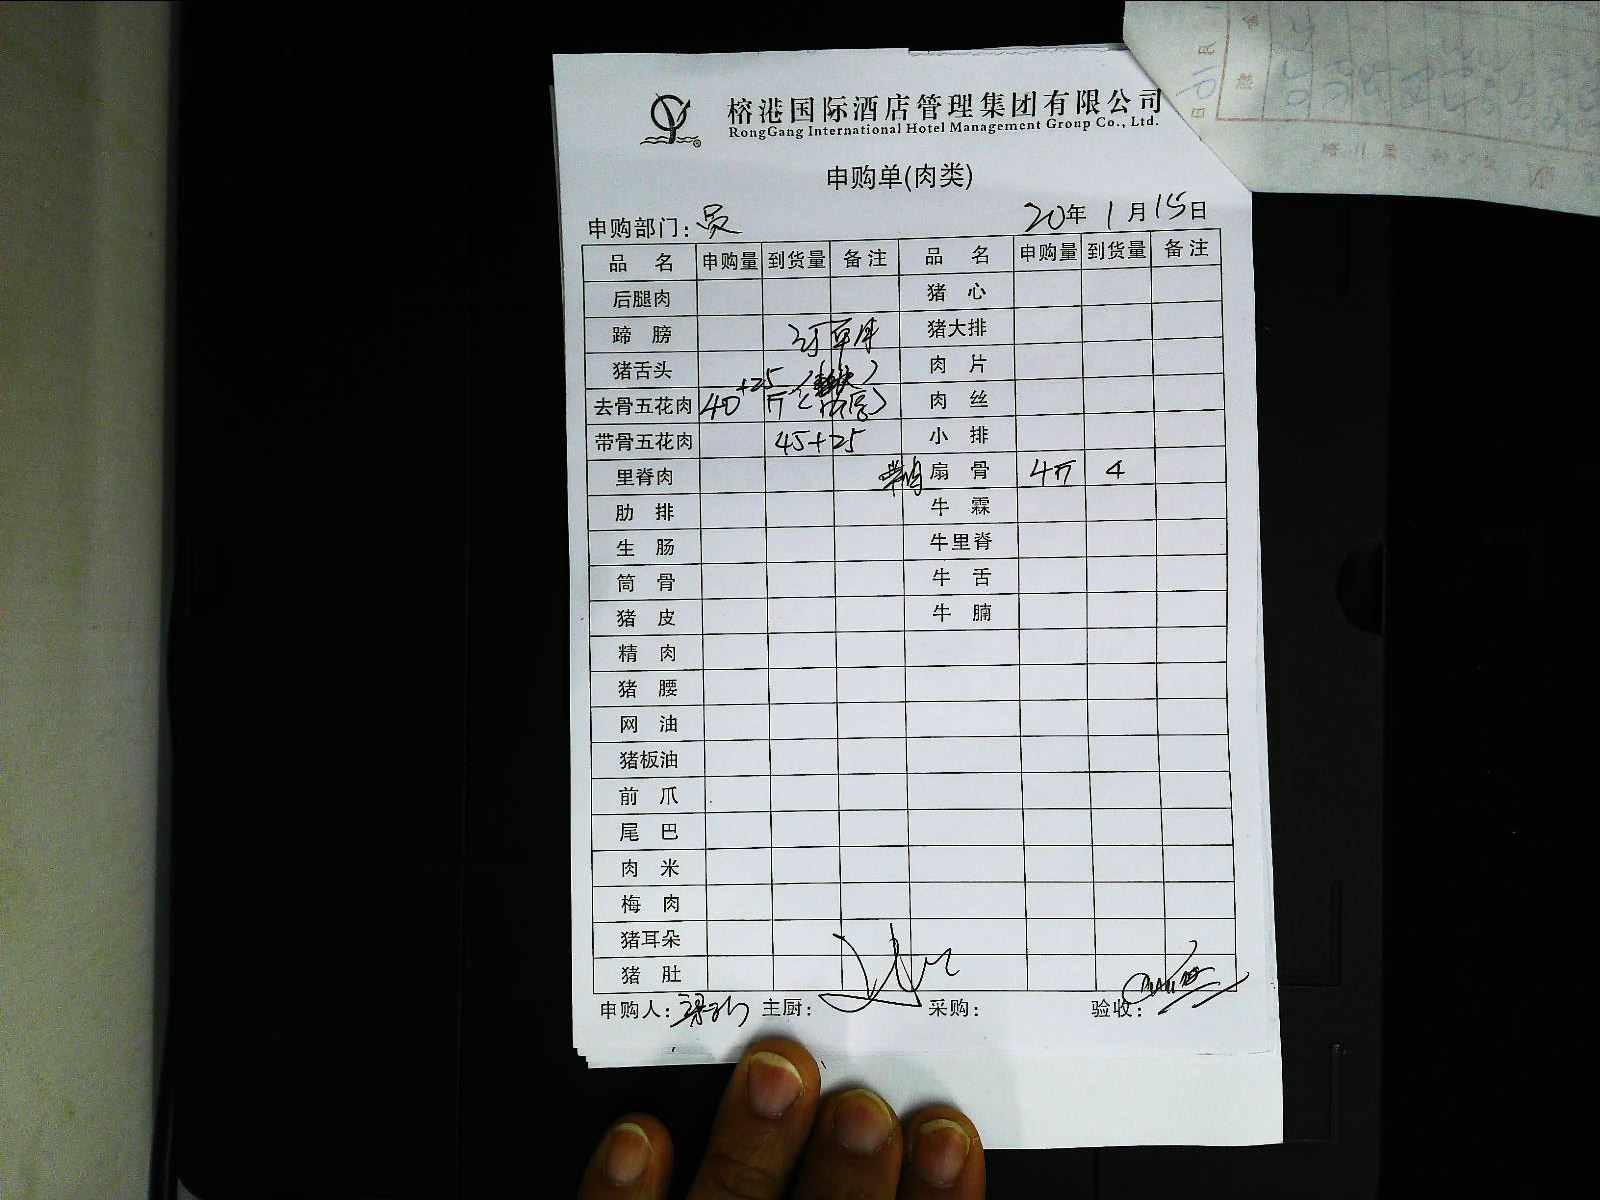 榕港国际酒店管理集团有限公司
RongGang International Hotel Management Group Co., Ltd.
申购单(肉类)
申购部门: 员 20年 1月15日
品名 申购量 到货量 备注 品名 申购量 到货量 备注
后腿肉 猪心
蹄膀 猪大排
猪舌头 +25 肉片
去骨五花肉 40 斤 肉丝
带骨五花肉 45+25 小排
里脊肉 带肉 扇骨 4斤 4
肋排 牛霖
生肠 牛里脊
筒骨 牛舌
猪皮 牛腩
精肉
猪腰
网油
猪板油
前爪
尾巴
肉米
梅肉
猪耳朵
猪肚
申购人: 主厨: 采购: 验收: